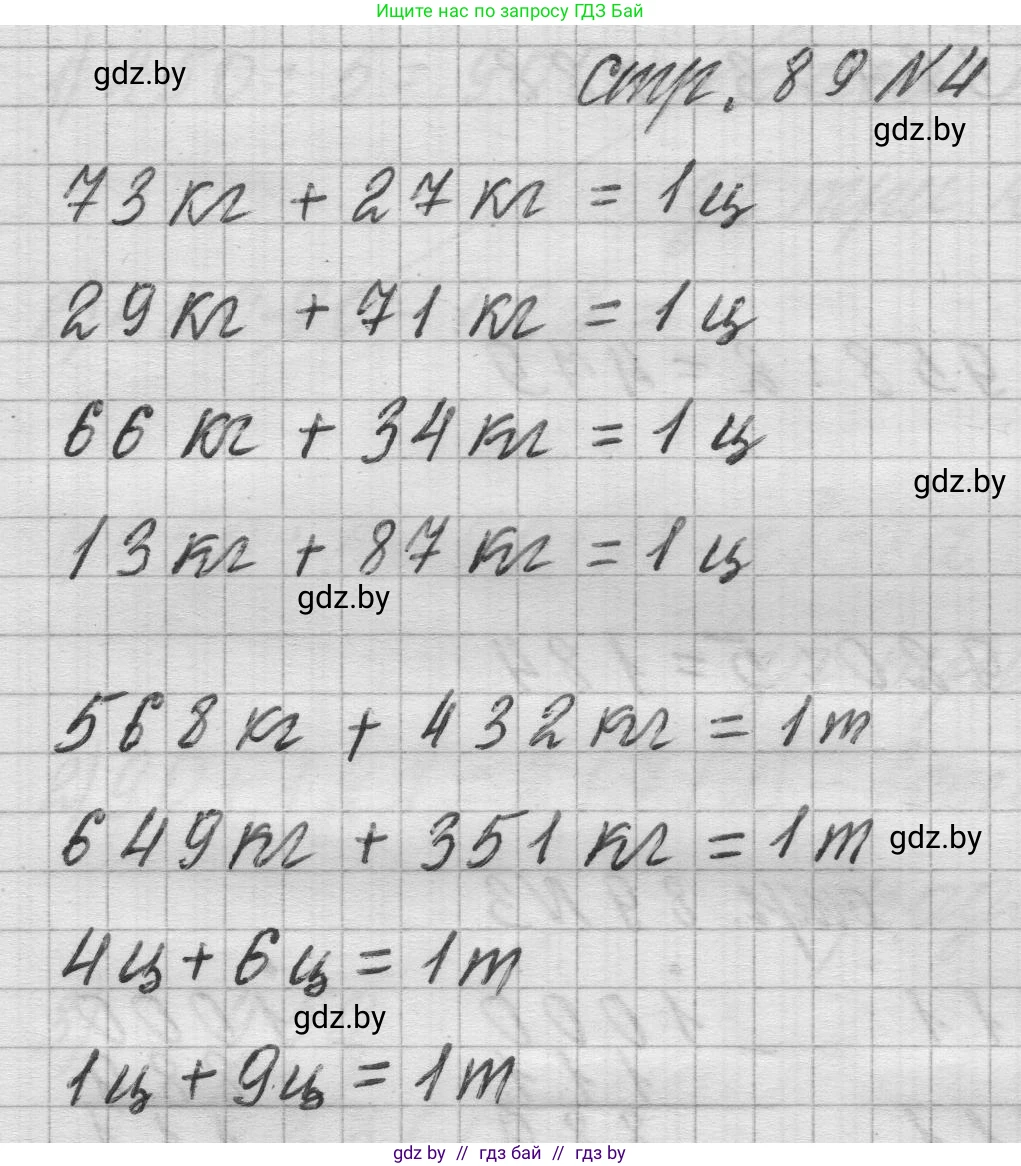 Ищите нас по запросу ГДЗ Бай
gdz.by
стр. 89 №4
gdz.by
73 кг + 27 кг = 1 ц
29 кг + 71 кг = 1 ц
66 кг + 34 кг = 1 ц
gdz.by
13 кг + 87 кг = 1 ц
gdz.by
568 кг + 432 кг = 1 т
649 кг + 351 кг = 1 т
gdz.by
4 ц + 6 ц = 1 т
gdz.by
1 ц + 9 ц = 1 т
gdz.by // гдз бай // гдз.by